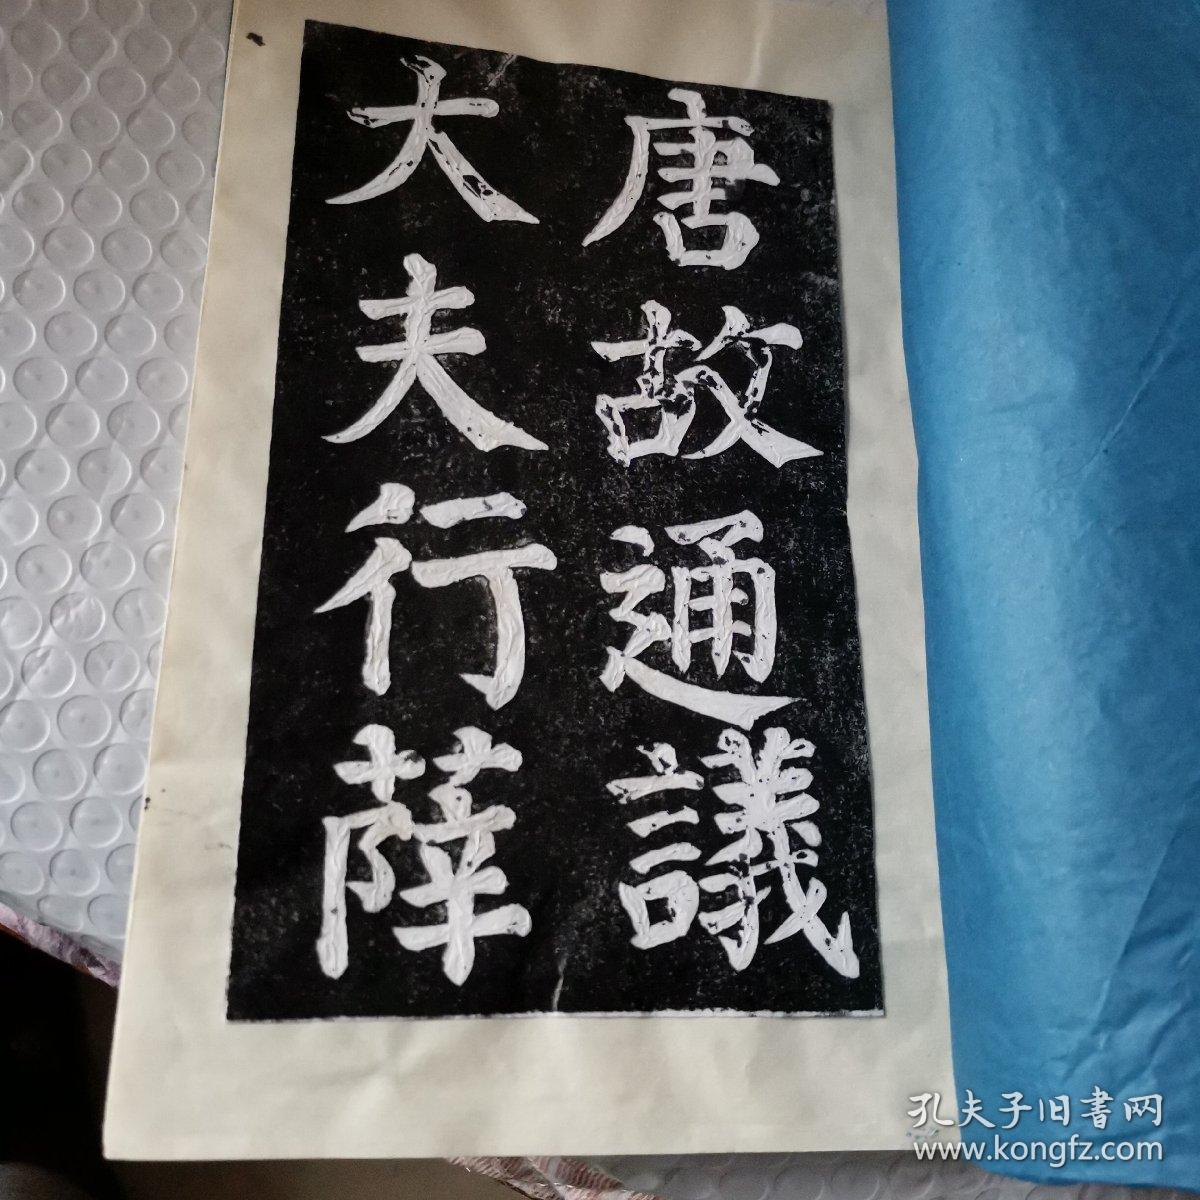 唐故通議
大夫行薛
孔夫子旧書网
www.kongfz.com